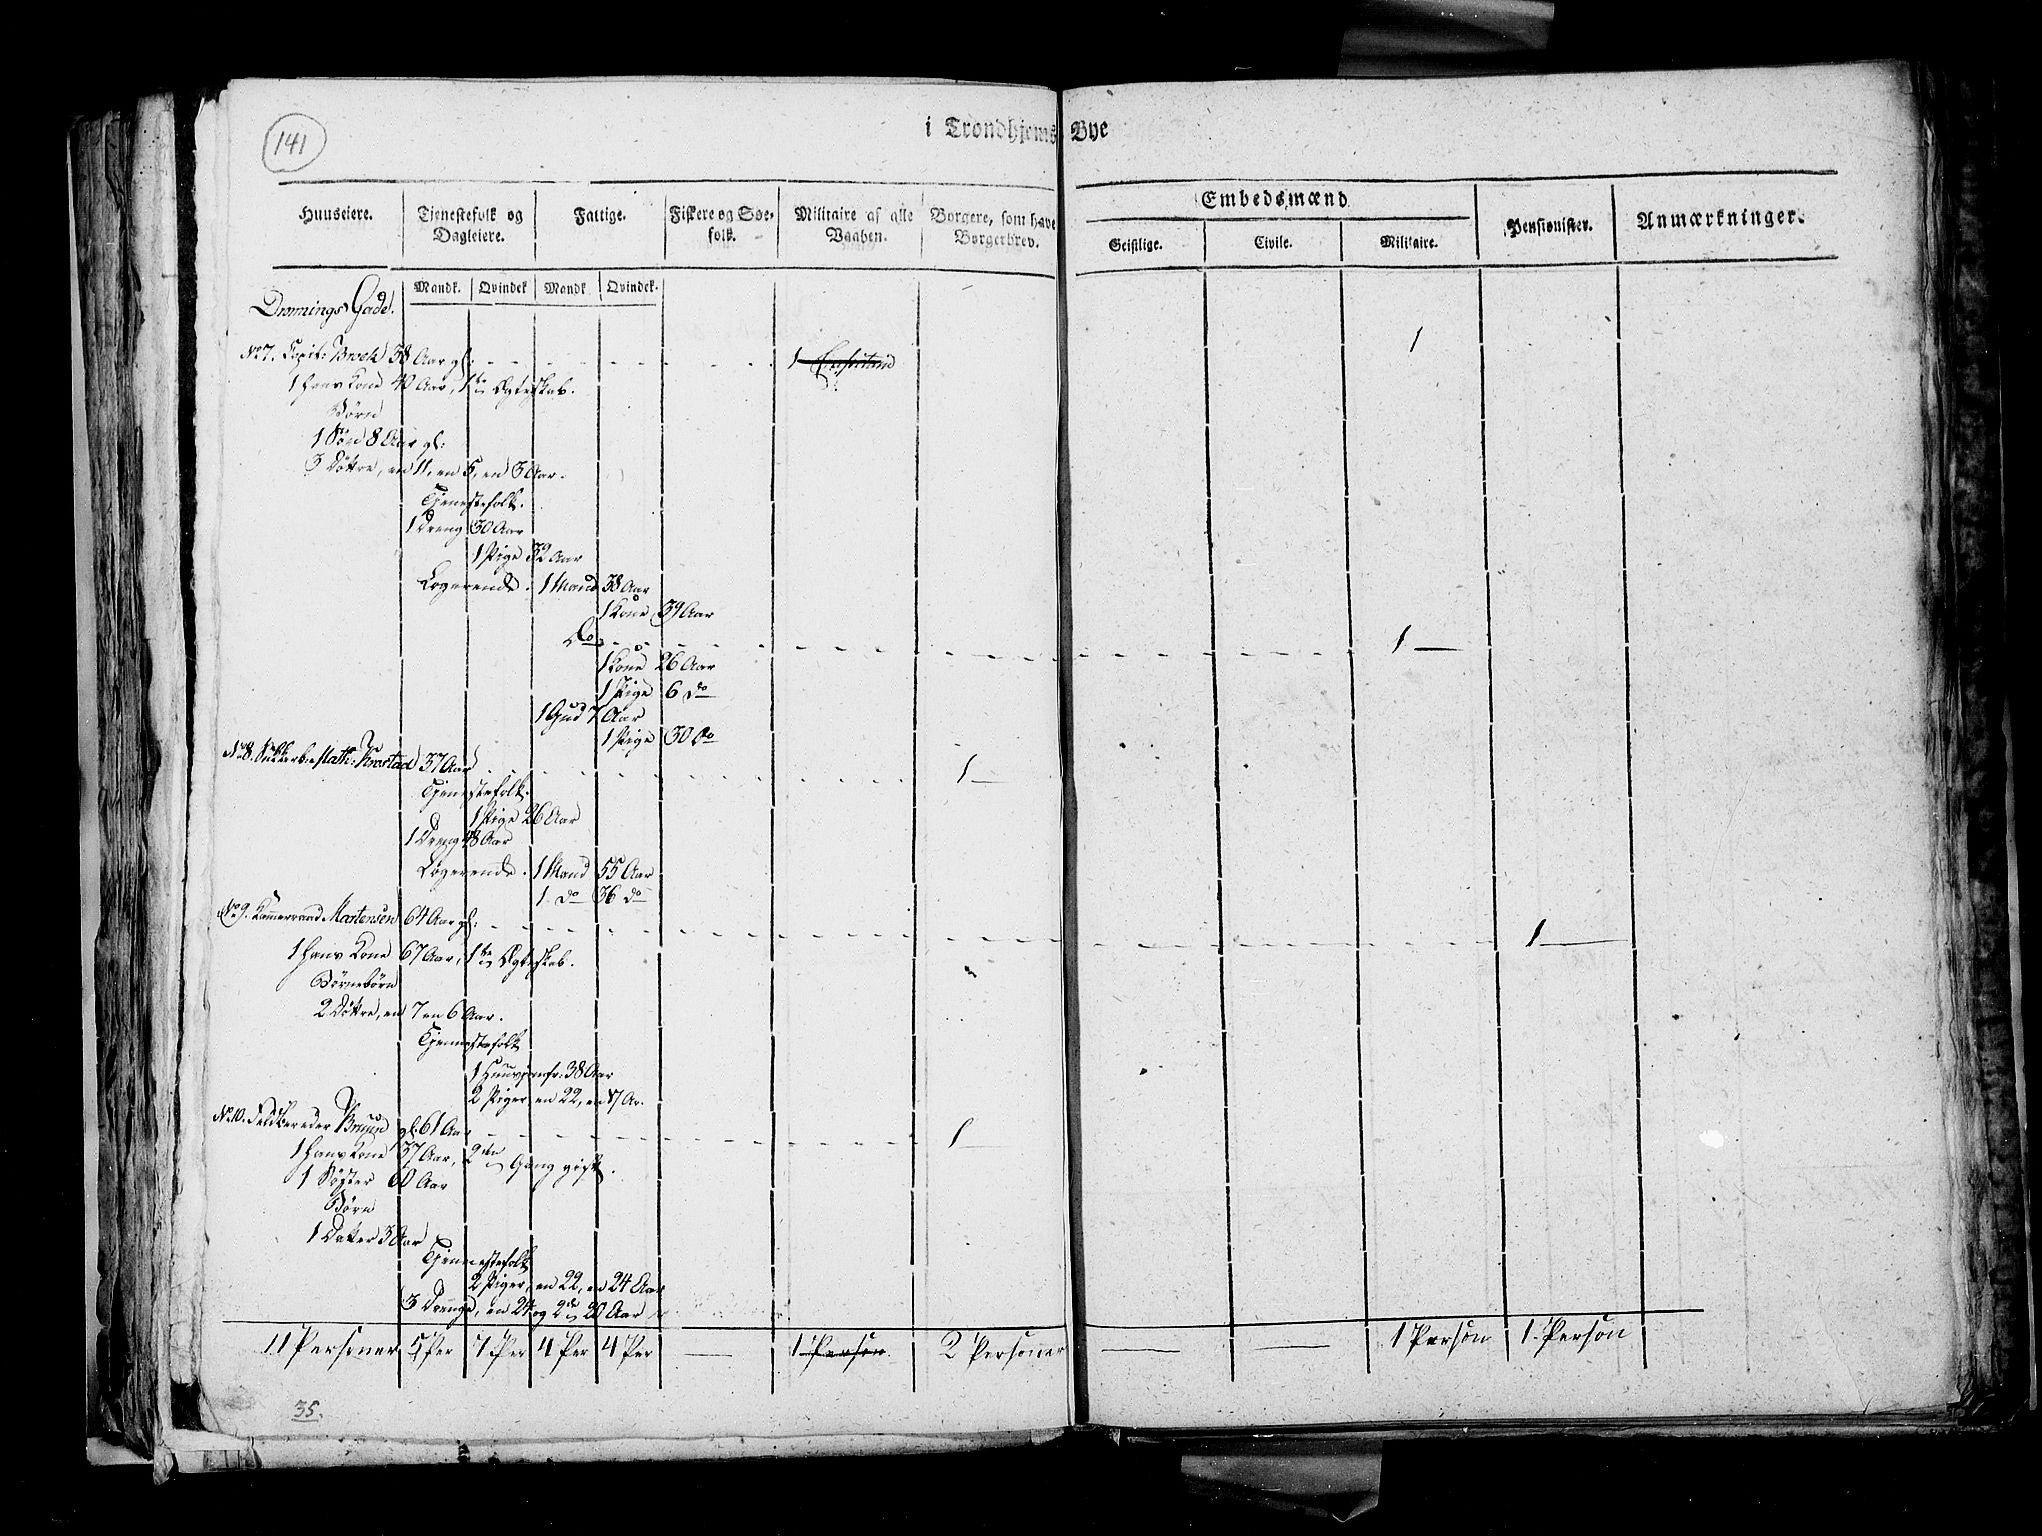 141
i Trondhjems Bye
Huuseiere.
Tienestefolk og Dagleiere.
Fattige.
Fiskere og Søe-folk.
Militaire af alle Vaaben.
Borgere, som have Borgerbrev.
Embedsmænd
Geistlige.
Civile.
Militaire.
Pensionister.
Anmærkninger.
Mandk. Qvindek Mandk Qvindek.
Dronnings Gade.
No 7. Capit: Brock 38 Aar gl. 1 1
1 Hans Kone 40 Aar, 1te Ægteskab.
Børn
1 Søn 8 Aar gl:
3 Døttre, en 11, en 5, en 3 Aar.
Tjenestefolk.
1 Dreng 30 Aar
1 Pige 32 Aar
Logerende. 1 Mand 38 Aar
1 Kone 39 Aar
Do 1
1 Kone 26 Aar
1 Pige 6 do
1 Gut 7 Aar
1 Pige 30 do
No 8. Math: Krostad 37 Aar 1
Tjenestefolk.
1 Pige 26 Aar
1 Dreng 48 Aar
Logerende. 1 Mand 55 Aar
1 do 36 do
No 9. Kammerraad Mortensen 64 Aar gl. 1
1 Hans Kone 67 Aar, 1te Ægteskab.
Børnebørn
2 Døttre, en 7 en 6 Aar.
Tjennestefolk
1 Huusjomfr: 38 Aar
2 Piger en 22, en 17 Ar.
No 10. Feldbereder Bruun gl. 61 Aar 1
1 Hans Kone 37 Aar, 2den Gang gift.
1 Søster 60 Aar
Børn
1 Datter 3 Aar
Tjennestefolk
2 Piger, en 22, en 24 Aar
3 Drenge, en 24 og 2de 20 Aar
11 Personer 5 Per 7 Per 4 Per 4 Per — 1 Person 2 Personer — — 1 Person 1 Person
35.